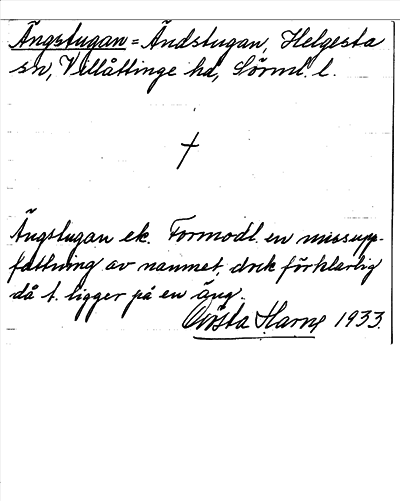 Ängstugan = Ändstugan, Helgesta
sn, Villåttinge hd, Sörml. l.
†
Ängstugan ek. Formodl. en missupp-
fattning av namnet, dock förklarlig
då t. ligger på en äng.
Gösta Harne 1933.